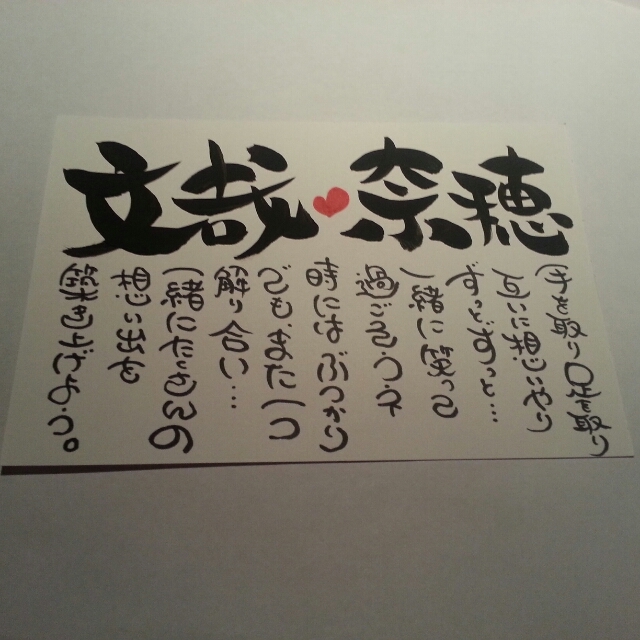 文哉♥奈穂
手を取り足を取り
互いに想いやり
ずっとずっと…
一緒に笑って
過ごそうネ
時にはぶつかり
でも、また一つ
解り合い…
一緒にたくさんの
想い出を
築き上げよう。